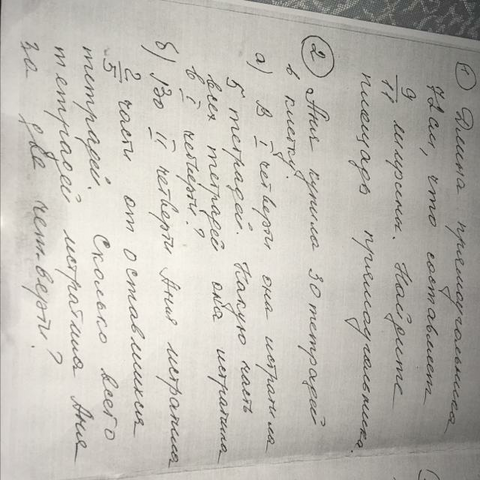 ① Длина прямоугольника
72 см, что составляет
9/11 ширины. Найдите
площадь прямоугольника.
② Аня купила 30 тетрадей
в клетку.
а) В I четверти она истратила
5 тетрадей. Какую часть
всех тетрадей она истратила
в I четверти?
б) Во II четверти Аня истратила
2/5 части от оставшихся
тетрадей. Сколько всего
тетрадей истратила Аня
за две четверти?